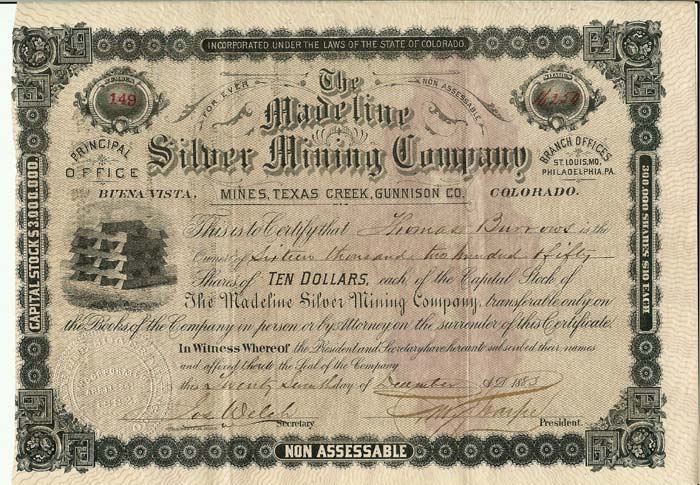 INCORPORATED UNDER THE LAWS OF THE STATE OF COLORADO.
149
FOR EVER
NON ASSESSABLE
The
Madeline
Silver Mining Company
PRINCIPAL
OFFICE
BUENA VISTA,
MINES, TEXAS CREEK, GUNNISON CO.
BRANCH OFFICES
ST. LOUIS, MO.
PHILADELPHIA, PA.
COLORADO.
CAPITAL STOCK $3,000,000.
300,000 SHARES $10 EACH
This is to Certify that Thomas Burrows is the
Owner of Sixteen thousand two hundred & fifty
Shares of TEN DOLLARS, each of the Capital Stock of
The Madeline Silver Mining Company, transferable only on
the Books of the Company in person or by Attorney on the surrender of this Certificate.
In Witness Whereof the President and Secretary have hereunto subscribed their names
and affixed thereto the Seal of the Company
this Twenty Seventh day of December A.D. 1883
Jos Welch
Secretary
President.
NON ASSESSABLE